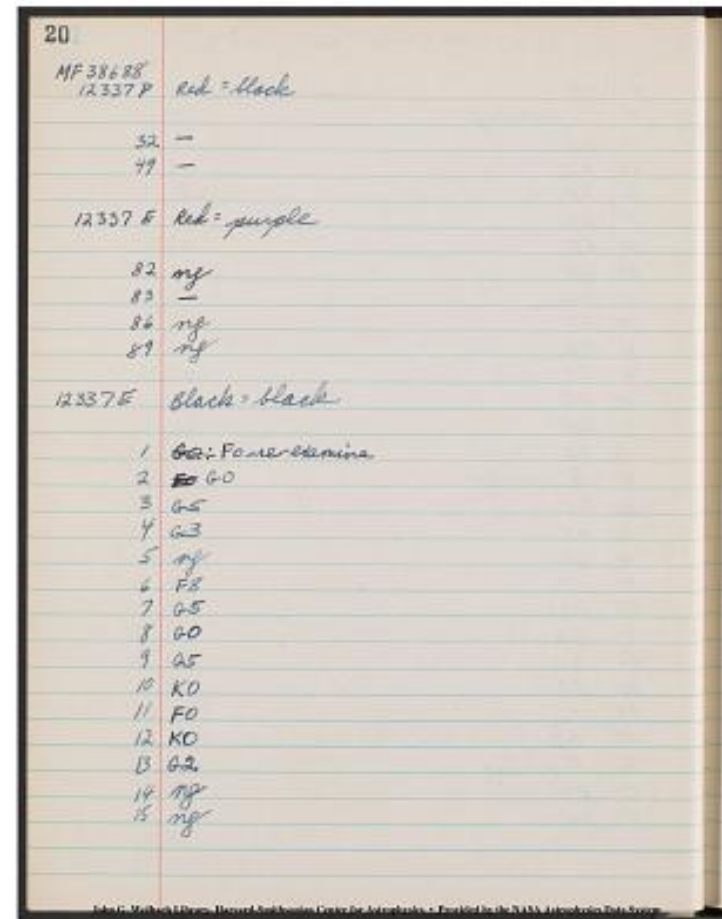 20
MF 38688
12337 P Red = black
32 —
49 —
12337 E Red = purple
82 ng
83 —
86 ng
89 ng
12337 E Black = black
1 G2: F0 re-examine
2 F0 G0
3 G5
4 G3
5 ng
6 F8
7 G5
8 G0
9 G5
10 K0
11 F0
12 K0
13 G2
14 ng
15 ng
John G. Wolbach Library, Harvard-Smithsonian Center for Astrophysics • Provided by the NASA Astrophysics Data System